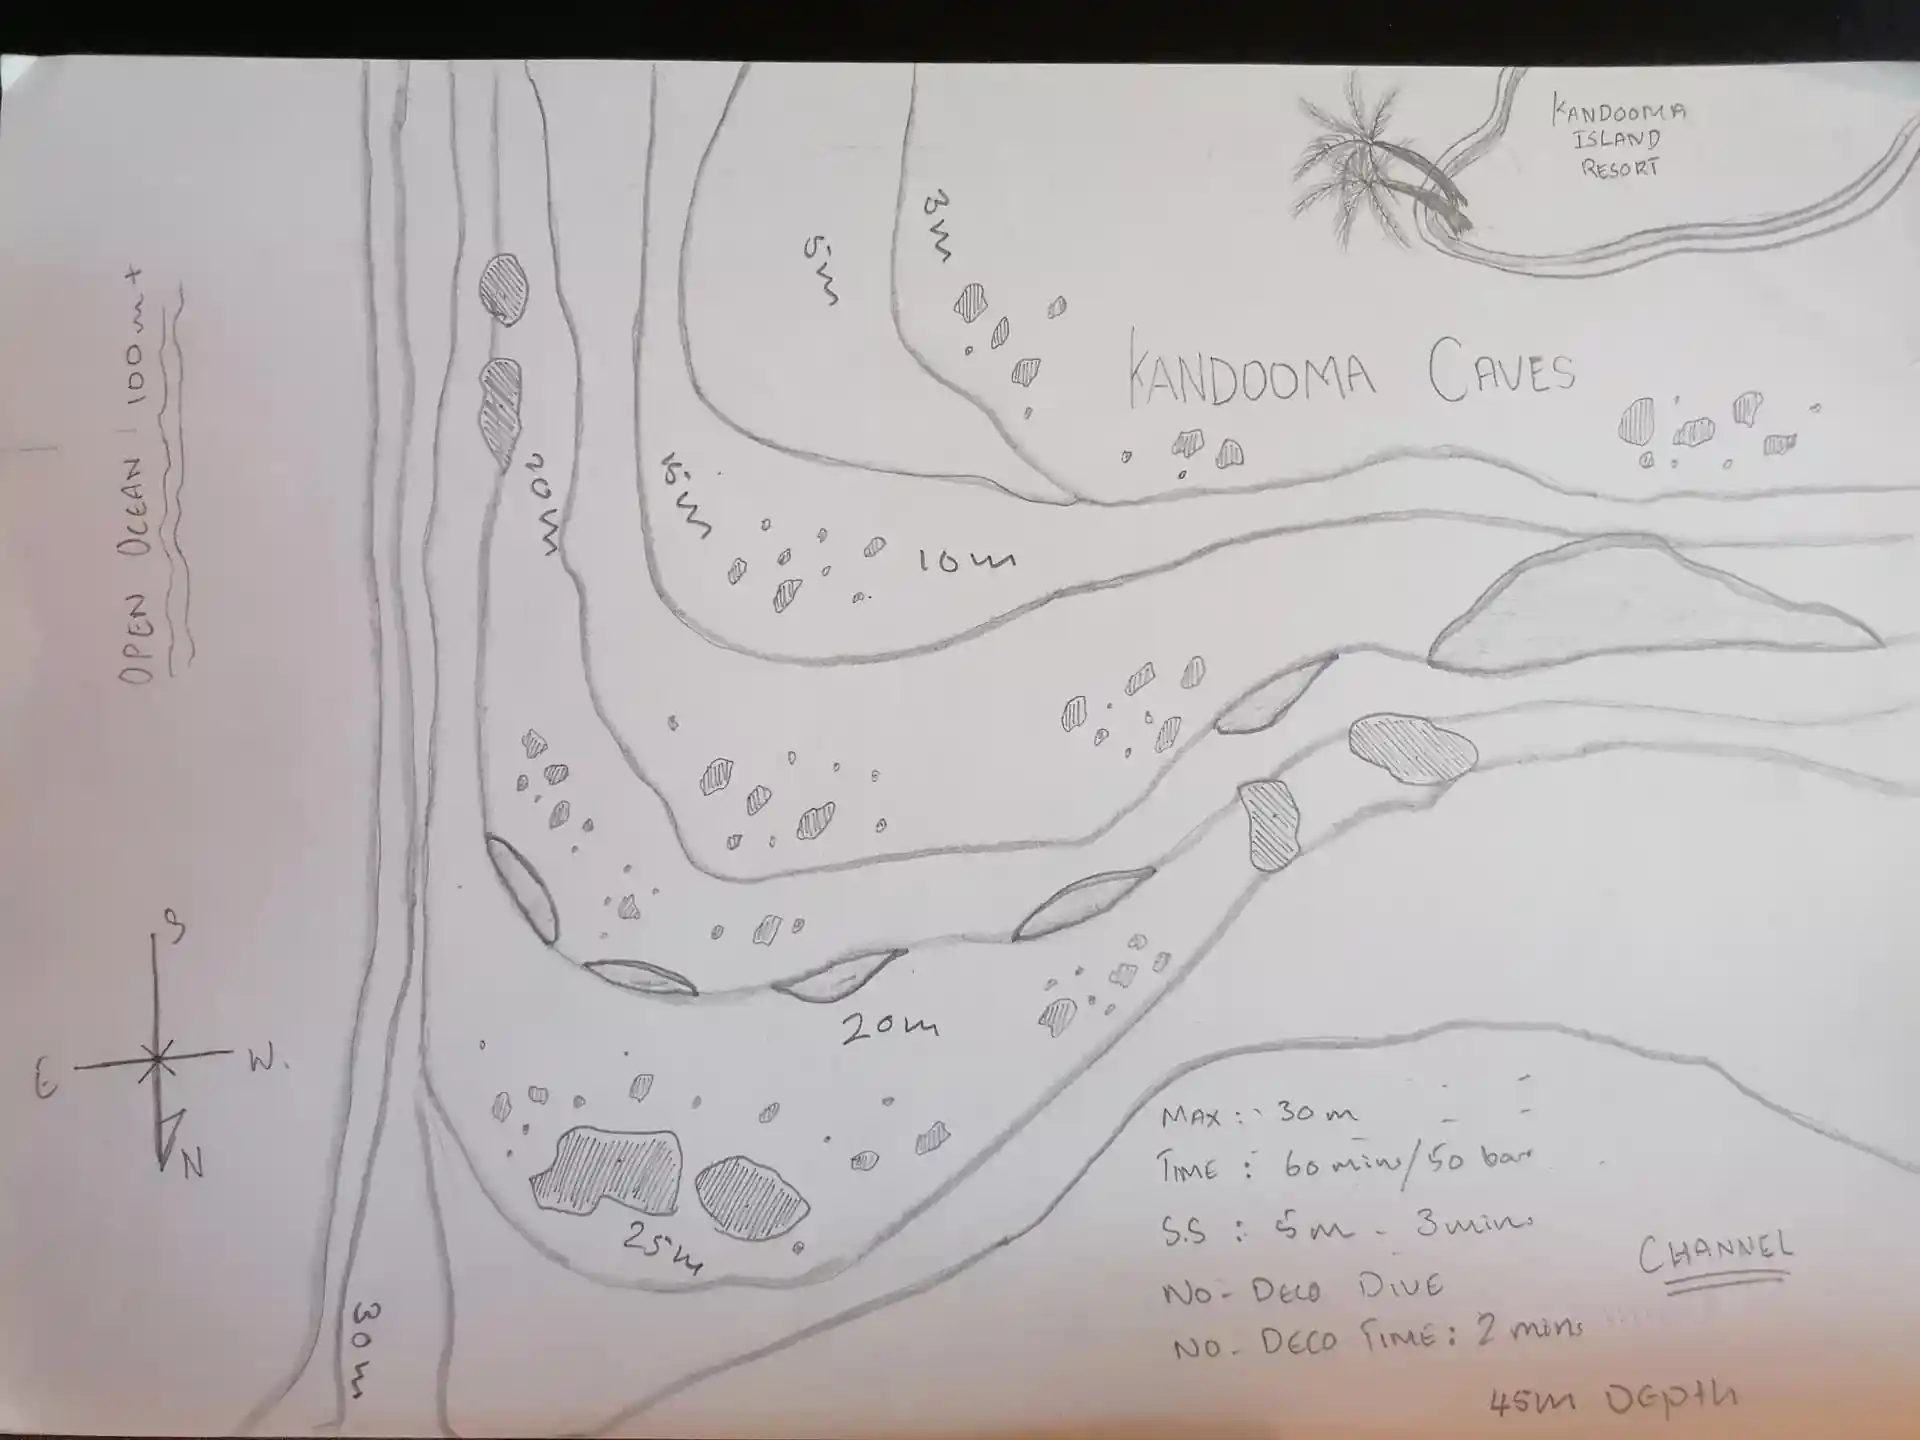 KANDOOMA
ISLAND
RESORT
3m
5m
KANDOOMA CAVES
OPEN OCEAN 100m+
15m
20m
10m
20m
25m
30m
S
E
W.
N
MAX : 30 m
TIME : 60 mins/50 bar
S.S : 5m - 3mins
NO- DECO DIVE
NO- DECO TIME: 2 mins
CHANNEL
45m DEPTH